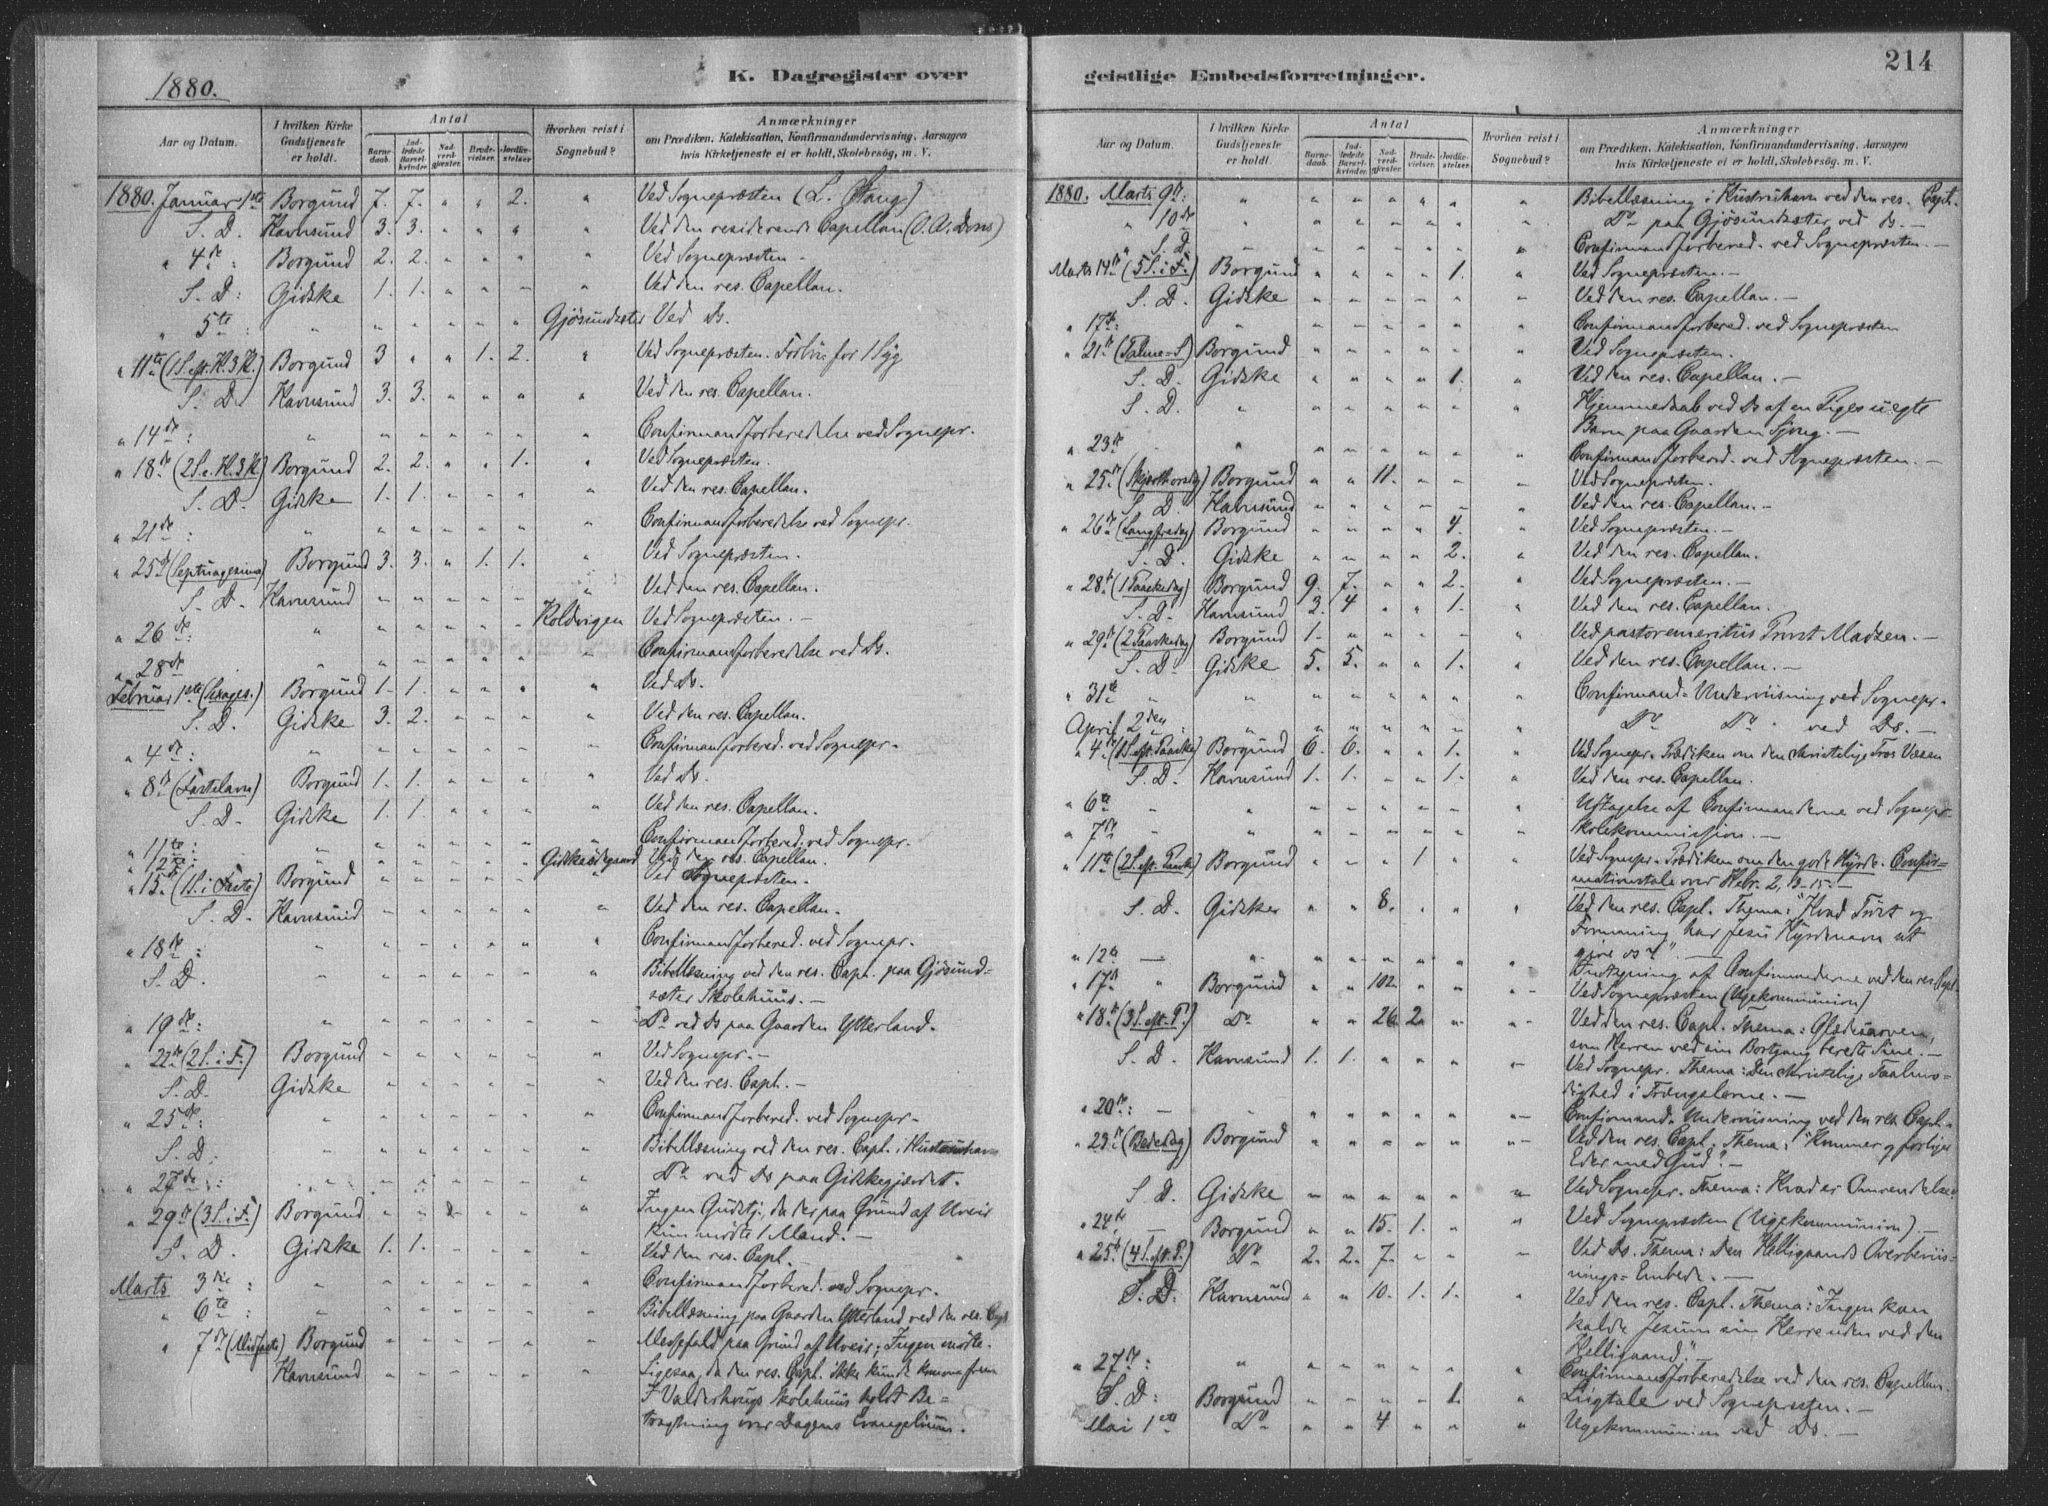 1880.
K. Dagregister over
Aar og Datum.
I hvilken Kirke Gudstjeneste er holdt.
Antal
Barnedaab.
Indledede Barselkvinder.
Nadverdgjester.
Brudevielser.
Jordfæstelser.
Hvorhen reist i Sognebud?
Anmærkninger
om Prædiken, Katekisation, Konfirmandundervisning, Aarsagen
hvis Kirketjeneste ei er holdt, Skolebesög, m. V.
1880. Januar 1ste Borgund 7. 7. " " 2. " Ved Sognepræsten (L. Stang)
S. D. Havnsund 3. 3. " " " " Ved den residerende Capellan (O. A. Dons)
" 4de : Borgund 2. 2. " " " " Ved Sognepræsten -
S. D: Gidske 1. 1. " " " " Ved den res. Capellan.
" 5te : " " " " " " Gjösundsæter Ved Ds.
" 11te (1 S. eft. H. 3 K.) Borgund 3 " " 1. 2. " Ved Sognepræsten. Forbön for 1 Syg
S. D. Havnsund 3. 3. " " " " Ved den res. Capellan.
" 14de : " " " " " " " Confirmandforberedelse ved Sognepr.
" 18de (2 S. e. H. 3 K) Borgund 2. 2. " " 1. " Ved Sognepræsten.
S. D. Gidske 1. 1. " " " " Ved den res. Capellan.
" 21de : " " " " " " " Confirmandforberedelse ved Sognepr.
" 25de (Septuagesima) Borgund 3. 3. " 1. 1. " Ved Sognepræsten.
S. D. Havnsund " " " " " " Ved den res. Capellan.
" 26de : " " " " " " Koldvigen Ved Sognepræsten. -
" 28de " " " " " " " Confirmandforberedelse ved Ds.
Februar 1ste (Sexages.) Borgund 1. 1. " " " " Ved Ds.
S. D. Gidske 3. 2. " " " " Ved den res. Capellan.
" 4de : " " " " " " " Confirmandforbered. ved Sognepr.
" 8de (Fastelavn) Borgund 1. 1. " " " " Ved Ds.
S. D. Gidske 1. 1. " " " " Ved den res. Capellan.
" 11te : " " " " " " " Confirmandforbered. ved Sognepr.
" 12te : " " " " " " Gidskeödegaard Ved den res. Capellan.
" 15de (1 S. i Faste) Borgund " " " " " " Ved Sognepræsten.
S. D. Havnsund " " " " " " Ved den res. Capellan.
" 18de : " " " " " " " Confirmandforbered. ved Sognepr.
S. D. " " " " " " " Bibellæsning ved den res. Capl. paa Gjösund-
sæter Skolehuus. -
" 19de : " " " " " " " Do ved Ds paa Gaarden Ytterland.
" 22de (2 S. i F.) Borgund " " " " " " Ved Sognepr. -
S. D. Gidske " " " " " " Ved den res. Capl. -
" 25de : " " " " " " " Confirmandforbered. ved Sognepr.
S. D. " " " " " " " Bibellæsning ved den res. Capl. i
" 27de : " " " " " " " Do ved Ds paa Gidskegjærdet.
" 29de (3 S. i F.) Borgund " " " " " " Ingen Gudstj. da der paa Grund af Uveir
kun mödte 1 Mand. -
S. D. Gidske 1. 1. " " " " Ved den res. Capl. -
Marts 3die : " " " " " " " Confirmandforbered. ved Sognepr.
" 6te : " " " " " " " Bibellæsning paa Gaarden Ytterland ved den res. Capl
" 7de (Midfaste) Borgund " " " " " " Messefald paa Grund af Uveir; Ingen mödte.
Havnsund " " " " " " Ligesaa, da den res. Capl. ikke kunde komme frem
I Valderhougs Skolehuus holdt Be-
tragtning over Dagens Evangelium.
geistlige Embedsforretninger.
214
Aar og Datum.
I hvilken Kirke Gudstjeneste er holdt.
Antal
Barnedaab.
Indledede Barselkvinder.
Nadverdgjester.
Brudevielser.
Jordfæstelser.
Hvorhen reist i Sognebud?
Anmærkninger
om Prædiken, Katekisation, Konfirmandundervisning, Aarsagen
hvis Kirketjeneste ei er holdt, Skolebesög, m. V.
1880. Marts 9de : " " " " " " " Bibellæsning i ved den res. Capl.
" 10de " " " " " " " Do paa Gjösundsæter ved Ds. -
" S. D. " " " " " " " Confirmandforbered. ved Sognepræsten. -
Marts 14de (5 S. i F.) Borgund " " " " 1. " Ved Sognepræsten. -
S. D. Gidske " " " " " " Ved den res. Capellan. -
" 17de : " " " " " " " Confirmandforbered. ved Sognepræsten
" 21de (Palme-S) Borgund " " " " " " Ved Sognepræsten.
S. D. Gidske " " " " 1. " Ved den res. Capellan. -
S. D. " " " " " " " Hjemmedaab ved Ds af en Piges uægte
Barn paa Gaarden Sjong. -
" 23de " " " " " " " Confirmandforbered. ved Sognepræsten. -
" 25de (Skjærthorsdg) Borgund " " 11. " " " Ved Sognepræsten.
S. D. Havnsund " " " " " " Ved den res. Capellan. -
" 26de (Langfredag) Borgund " " " " 4. " Ved Sognepræsten. -
S. D. Gidske " " " " 2. " Ved den res. Capellan.
" 28de (1 Paaskedag) Borgund 9. 7. " " 2. " Ved Sognepræsten. -
S. D. Havnsund 3. 4 " " 1. " Ved den res. Capellan.
" 29de (2 Paaskedag) Borgund 1. " " " " " Ved pastor emeritus Provst Madzen. -
S. D. Gidske 5. 5. " " 1. " Ved den res. Capellan. -
" 31te " " " " " " " Confirmand-Underviisning ved Sognepr.
April 2den : " " " " " " " Do Do ved Ds. -
" 4de (1 S. eft. Paaske) Borgund 6. 6. " " 1. " Ved Sognepr. Prædiken om den christelige Tros Væsen
S. D. Havnsund 1. 1. " " 1. " Ved den res. Capellan.
" 6te " " " " " " " " Udtagelse af Confirmanderne ved Sognepr
" 7de " " " " " " " " Skolekommission. -
" 11te (2 S. eft. Paaske) Borgund " " " 1 " " Ved Sognepr. Prædiken om den gode Hyrde. Confir-
mationstale over Hebr. 2, 13-15. -
S. D. Gidske " " 8. " " " Ved den res. Capl. Thema: "Hvad Tröst og
Formaning har Jesu Hyrdenavn at
give os?". -
" 12te - " " " " " " " Indtegning af Confirmanderne ved den res. Capl
" 17de " Borgund " " 102. " " " Ved Sognepræsten (Ugekommunion)
" 18de (3 S. eft. P.) Do " " 26 2. " " Ved den res. Capl. Thema: Glædesarven,
som Herren ved sin Bortgang beredte Sine. -
S. D. Havnsund 1. 1. " " " " Ved Sognepr. Thema: Den christelige Taalmo-
dighed i Trængslerne. -
" 20de : - " " " " " " " Confirmand-Underviisning ved den res. Capl. -
" 23de (Bededag) Borgund " " " " " " Ved den res. Capl. Thema: "Kommer og forliges
Eder med Gud". -
S. D. Gidske " " " " " " Ved Sognepr. Thema: Hvad er Omvendelse?
" 24de - Borgund " " 15. 1. " " Ved Sognepræsten (Ugekommunion). -
" 25de (4 S. eft. P.) Do 2. 2. 7. " " " Ved Ds. Thema: Den Helligaands Overbeviis-
nings-Embede. -
S. D. Havnsund " " 10. 1. 1. " Ved den res. Capl. Thema: "Ingen kan
kalde Jesum sin Herre uden ved den
Helligaand"
" 27de : " " " " " " " Confirmandforberedelse ved den res. Capellan.
S. D: Borgund " " " " 1. " Liigtale ved Sognepræsten. -
Mai 1ste Do " " 4 " " " Ugekommunion ved Ds. -